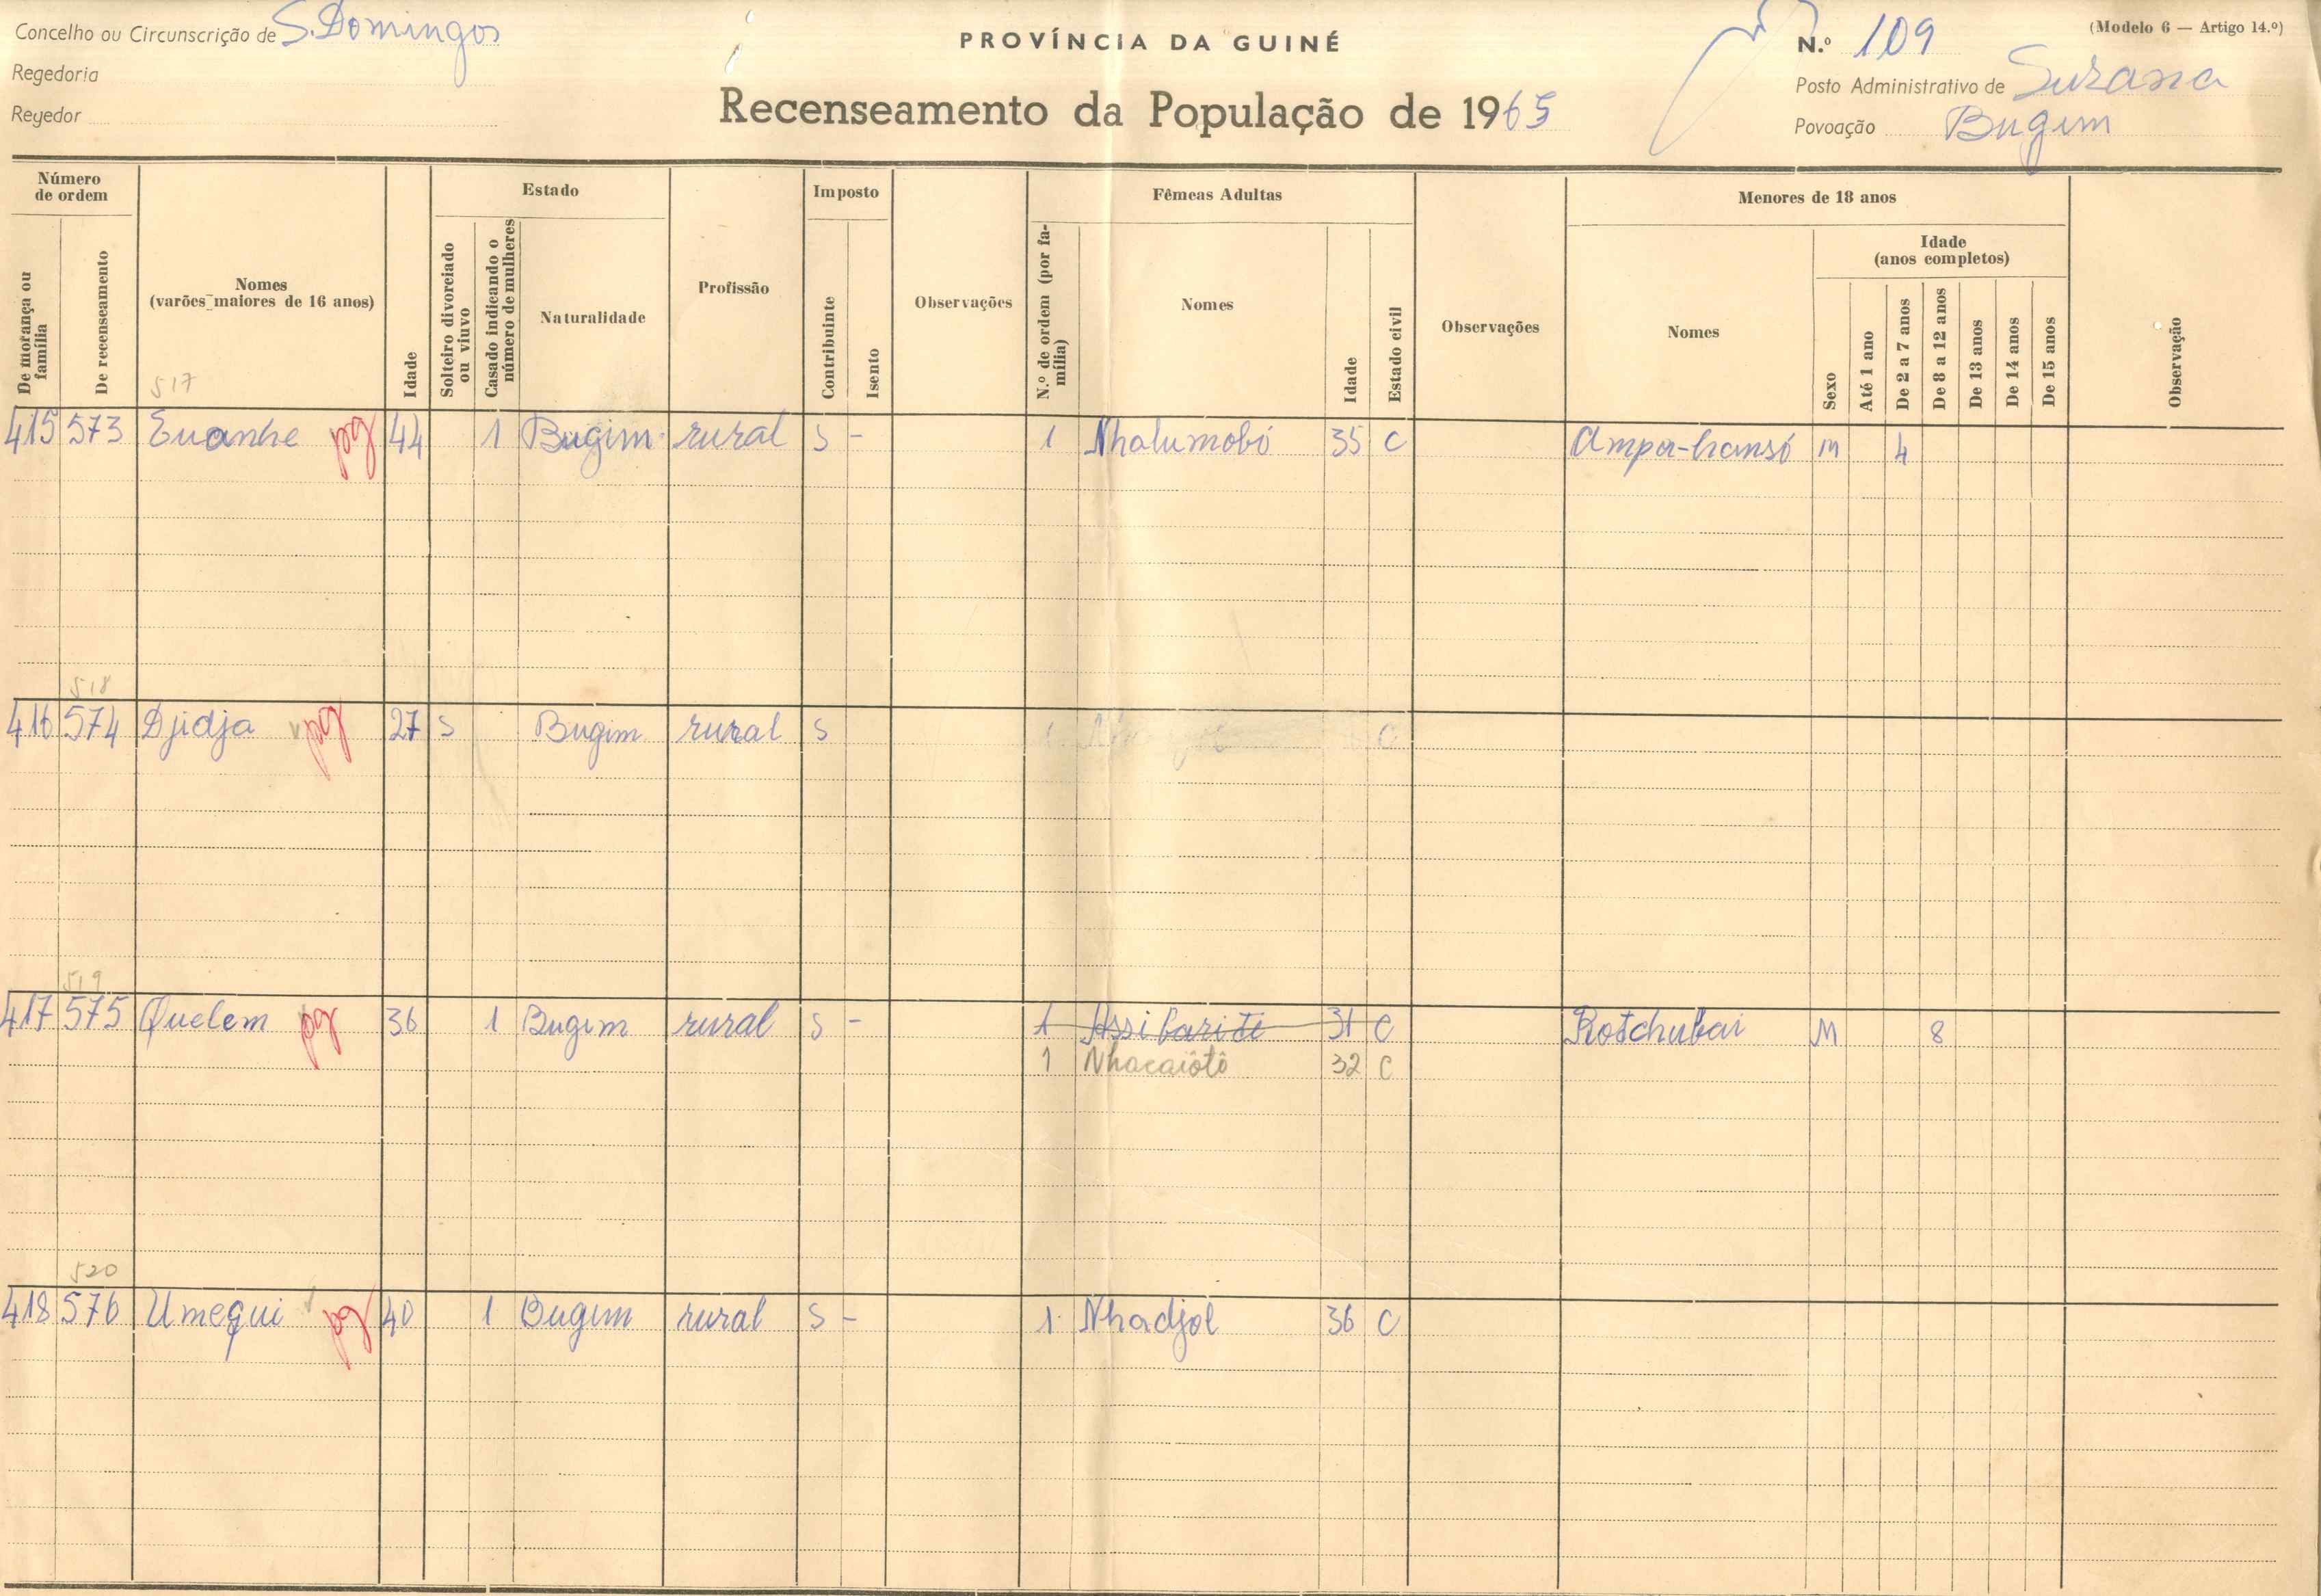 Concelho ou Circunscrição de S. Domingos
Regedoria
Regedor
PROVÍNCIA DA GUINÉ
Recenseamento da População de 1965
(Modelo 6 — Artigo 14.º)
N.º 109
Posto Administrativo de Suzana
Povoação Bugim
Número de ordem
De morança ou família
De recenseamento
Nomes
(varões maiores de 16 anos)
Idade
Estado
Solteiro divorciado ou viuvo
Casado indicando o número de mulheres
Naturalidade
Profissão
Imposto
Contribuinte
Isento
Observações
Fêmeas Adultas
N.º de ordem (por família)
Nomes
Idade
Estado civil
Observações
Menores de 18 anos
Nomes
Sexo
Idade
(anos completos)
Até 1 ano
De 2 a 7 anos
De 8 a 12 anos
De 13 anos
De 14 anos
De 15 anos
Observação
517
415 573 Euanhe pg 44 1 Bugim rural S - 1 Nhalumobó 35 C Ampa-hansó M 4
518
416 574 Djidja pg 27 S Bugim rural S C
519
417 575 Quelem pg 36 1 Bugim rural S - 1 Assibariti 31 C Rotchubai M 8
1 Nhacaiôtô 32 C
520
418 576 Umequi pg 40 1 Bugim rural S - 1 Nhadjol 36 C